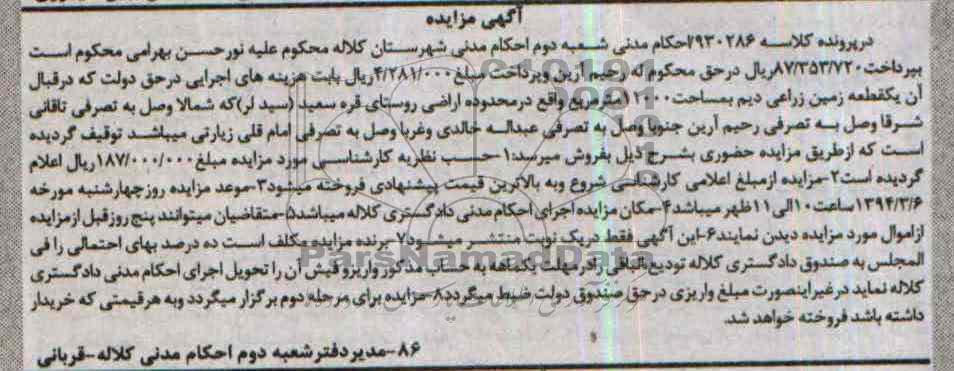 آگهی مزایده
درپرونده کلاسه ۲۹۳۰۲۸۶احکام مدنی شعبه دوم احکام مدنی شهرستان کلاله محکوم علیه نورحسن بهرامی محکوم است
بپرداخت۸۷/۳۵۳/۷۲۰ریال درحق محکوم له رحیم آرین وپرداخت مبلغ۴/۲۸۱/۰۰۰ریال بابت هزینه های اجرایی درحق دولت که درقبال
آن یکقطعه زمین زراعی دیم بمساحت۱۲۱۰۰مترمربع واقع درمحدوده اراضی روستای قره سعید (سید لر)که شمالا وصل به تصرفی تاقانی
شرقا وصل به تصرفی رحیم آرین جنوبا وصل به تصرفی عبداله خالدی وغربا وصل به تصرفی امام قلی زیارتی میباشد توقیف گردیده
است که ازطریق مزایده حضوری بشرح ذیل بفروش میرسد:۱-حسب نظریه کارشناسی مورد مزایده مبلغ۱۸۷/۰۰۰/۰۰۰ریال اعلام
گردیده است۲-مزایده ازمبلغ اعلامی کارشناسی شروع وبه بالاترین قیمت پیشنهادی فروخته میشود۳-موعد مزایده روزچهارشنبه مورخه
۱۳۹۴/۳/۶ساعت۱۰الی۱۱ظهر میباشد۴-مکان مزایده اجرای احکام مدنی دادگستری کلاله میباشد۵-متقاضیان میتوانند پنج روزقبل ازمزایده
ازاموال مورد مزایده دیدن نمایند۶-این آگهی فقط دریک نوبت منتشر میشود۷-برنده مزایده مکلف است ده درصد بهای احتمالی را فی
المجلس به صندوق دادگستری کلاله تودیع الباقی را درمهلت یکماهه به حساب مذکور واریزو فیش آن را تحویل اجرای احکام مدنی دادگستری
کلاله نماید درغیراینصورت مبلغ واریزی درحق صندوق دولت ضبط میگردد۸-مزایده برای مرحله دوم برگزار میگردد وبه هرقیمتی که خریدار
داشته باشد فروخته خواهد شد.
۸۶-مدیردفترشعبه دوم احکام مدنی کلاله-قربانی
ParsNamadData